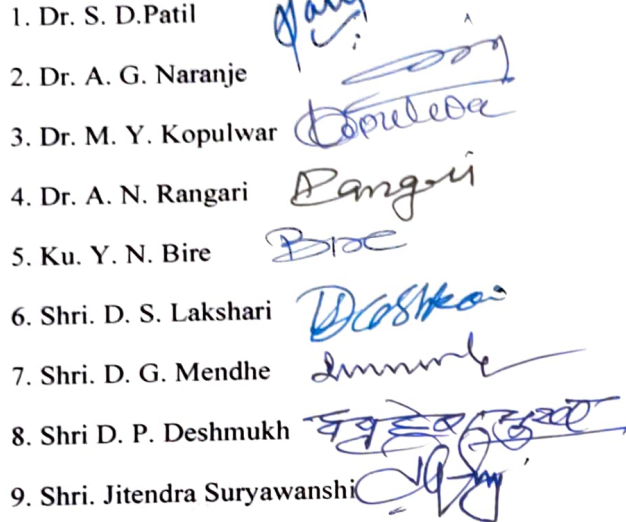 1. Dr. S. D.Patil
2. Dr. A. G. Naranje
3. Dr. M. Y. Kopulwar
4. Dr. A. N. Rangari Rangari
5. Ku. Y. N. Bire Bire
6. Shri. D. S. Lakshari
7. Shri. D. G. Mendhe
8. Shri D. P. Deshmukh
9. Shri. Jitendra Suryawanshi